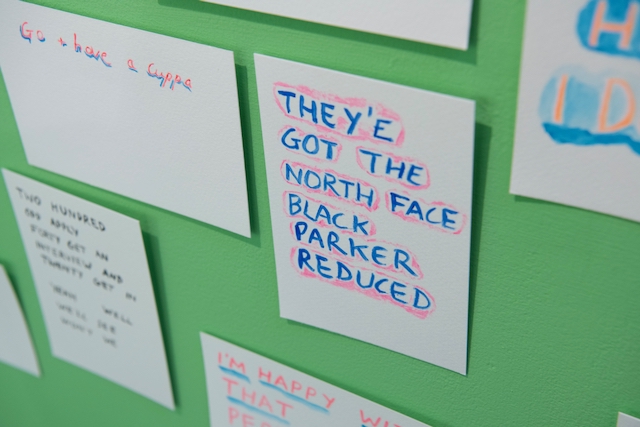 Go + have a cuppa
THEY'E
GOT THE
NORTH FACE
BLACK
PARKER
REDUCED
TWO HUNDRED
OFF APPLY
FORTY GET AN
INTERVIEW AND IN
TWENTY GET IN
YEAH WELL
WE'LL SEE
WON'T WE
I'M HAPPY
THAT
I D